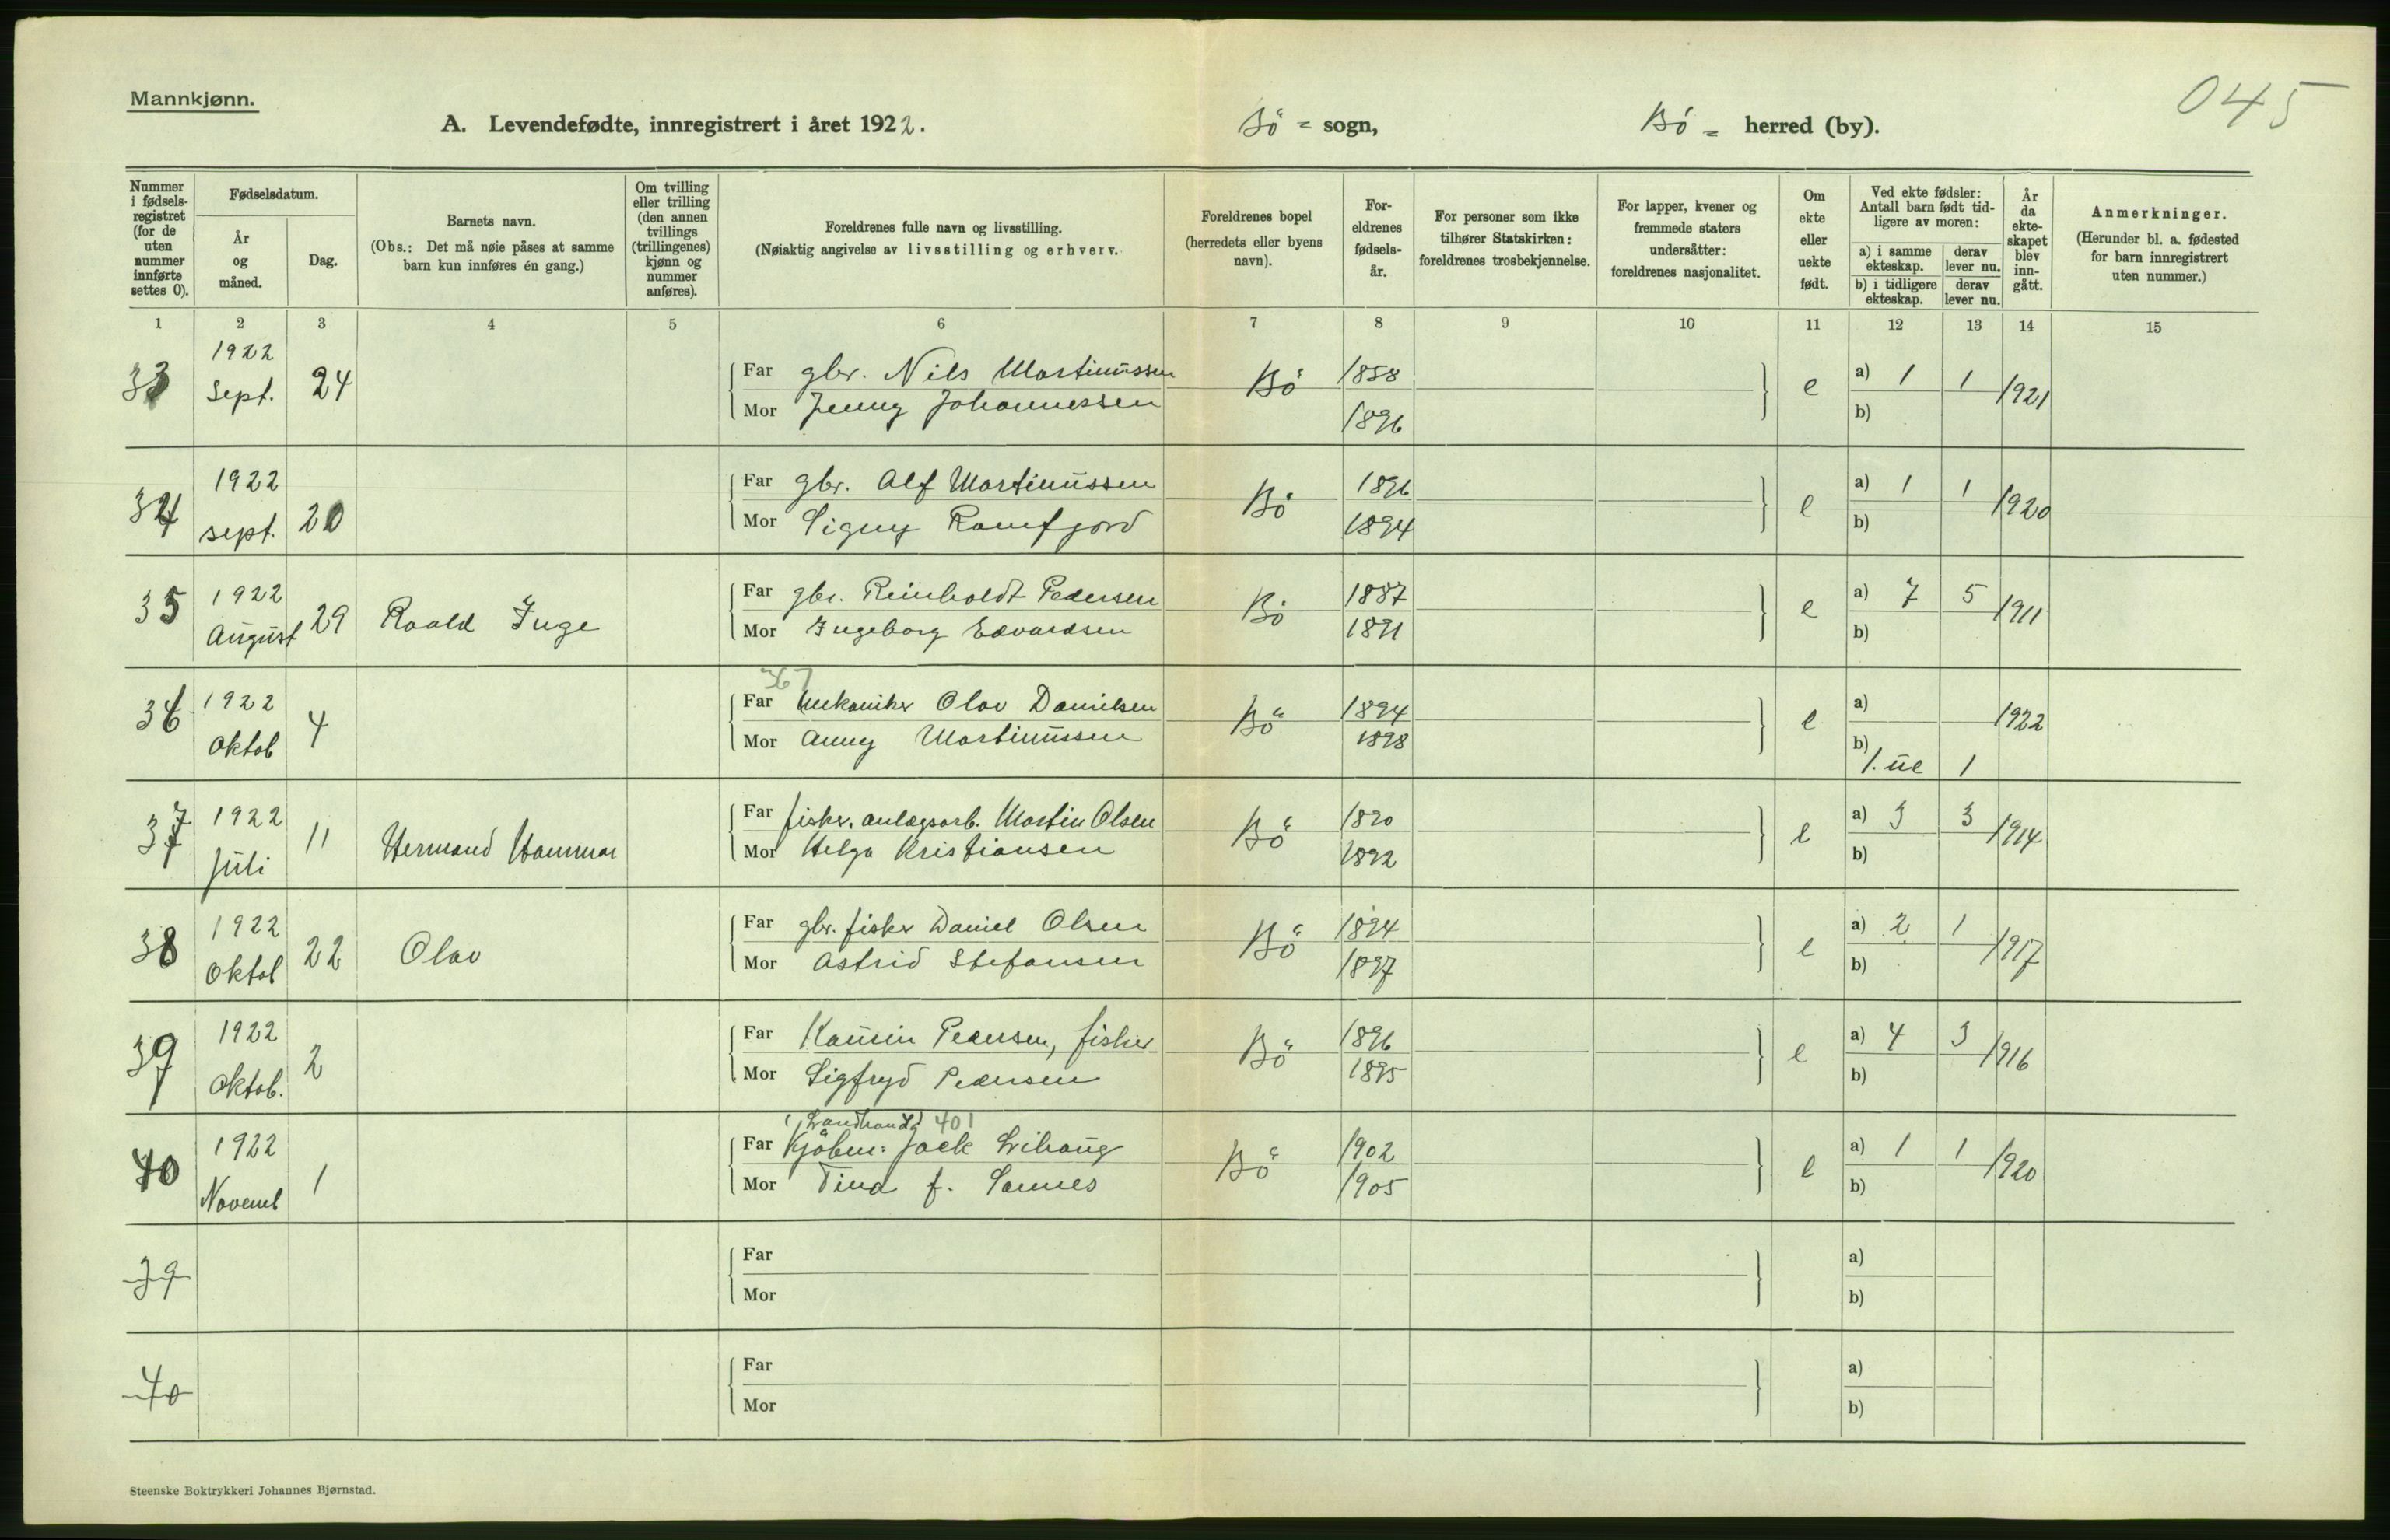 Mannkjønn.
045
A. Levendefødte, innregistrert i året 1922.
Bö = sogn,
Bö = herred (by).
Nummer i fødsels-registret (for de uten nummer innførte settes 0).
Fødselsdatum.
År og måned.
Dag.
Barnets navn.
(Obs.: Det må nøie påses at samme barn kun innføres én gang.)
Om tvilling eller trilling (den annen tvillings (trillingenes) kjønn og nummer anføres).
Foreldrenes fulle navn og livsstilling.
(Nøiaktig angivelse av livsstilling og erhverv.
Foreldrenes bopel (herredets eller byens navn).
For-eldrenes fødsels-år.
For personer som ikke tilhører Statskirken: foreldrenes trosbekjennelse.
For lapper, kvener og fremmede staters undersåtter: foreldrenes nasjonalitet.
Om ekte eller uekte født.
Ved ekte fødsler: Antall barn født tid-ligere av moren:
a) i samme ekteskap.
derav lever nu.
b) i tidligere ekteskap.
derav lever nu.
År da ekte-skapet blev inn-gått.
Anmerkninger.
(Herunder bl. a. fødested for barn innregistrert uten nummer.)
1 2 3 4 5 6 7 8 9 10 11 12 13 14 15
33 1922 Sept. 24
Far gbr. Nils Martinussen Bö 1858 e a) 1 1 1921
Mor Jenny Johannessen 1896 b)
34 1922 sept. 20
Far gbr. Alf Martinussen Bö 1896 e a) 1 1 1920
Mor Signy Ramfjord 1894 b)
35 1922 August 29 Roald Inge
Far gbr. Reinholdt Pedersen Bö 1887 e a) 7 5 1911
Mor Ingeborg Edvardsen 1891 b)
367
36 1922 Oktob 4
Far Mekaniker Olav Danielsen Bö 1894 e a) 1922
Mor Anny Martinussen 1898 b) 1. ue 1
37 1922 Juli 11 Hermand Hammar
Far fisker, anlægsarb. Martin Olsen Bö 1890 e a) 3 3 1914
Mor Helga Kristiansen 1892 b)
38 1922 Oktob 22 Olav
Far gbr. fisker Daniel Olsen Bö 1894 e a) 2 1 1917
Mor Astrid Stefansen 1897 b)
39 1922 Oktob. 2
Far Kausin Pedersen, fisker Bö 1896 e a) 4 3 1916
Mor Sigfryd Pedersen 1895 b)
401
40 1922 Novemb 1
Far Kjöbm: Jack Lihaug Bö 1902 e a) 1 1 1920
Mor Tina f. Sannes 1905 b)
39
Far a)
Mor b)
40
Far a)
Mor b)
Steenske Boktrykkeri Johannes Bjørnstad.